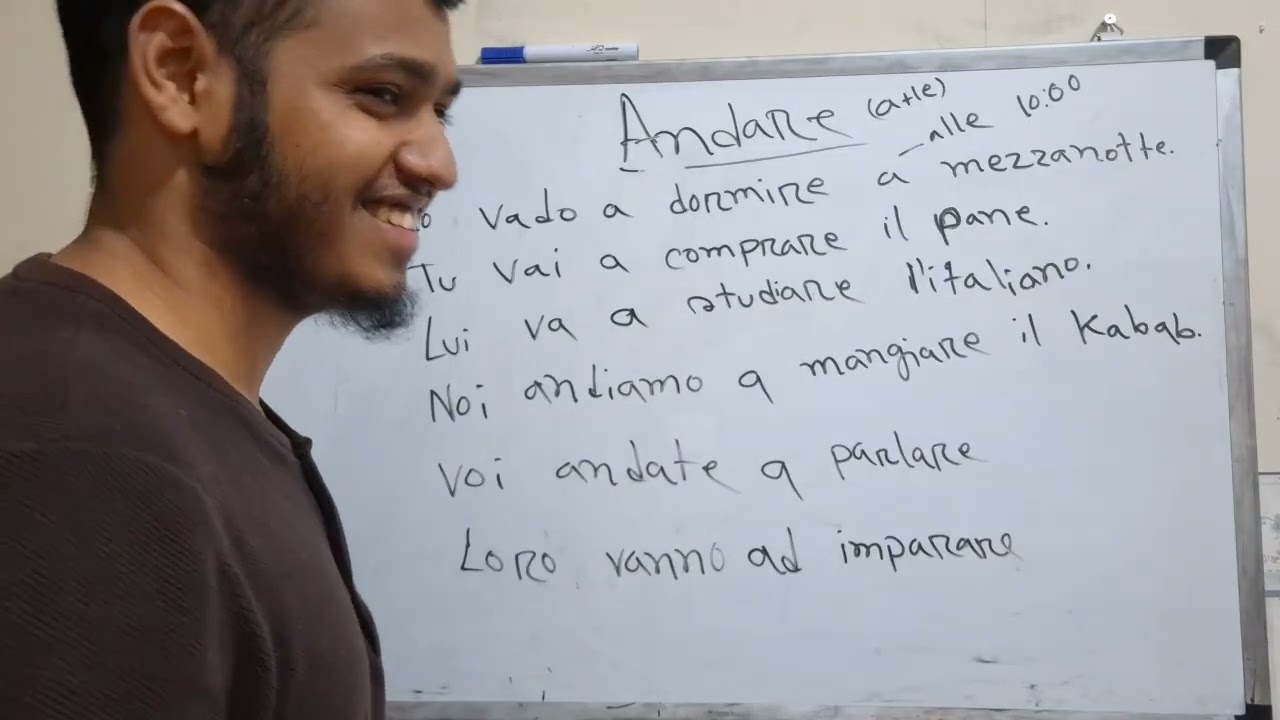 Andare (a+le)
alle 10:00
o vado a dormire a mezzanotte.
Tu vai a comprare il pane.
Lui va a studiare l'italiano.
Noi andiamo a mangiare il Kabab.
Voi andate a parlare
Loro vanno ad imparare